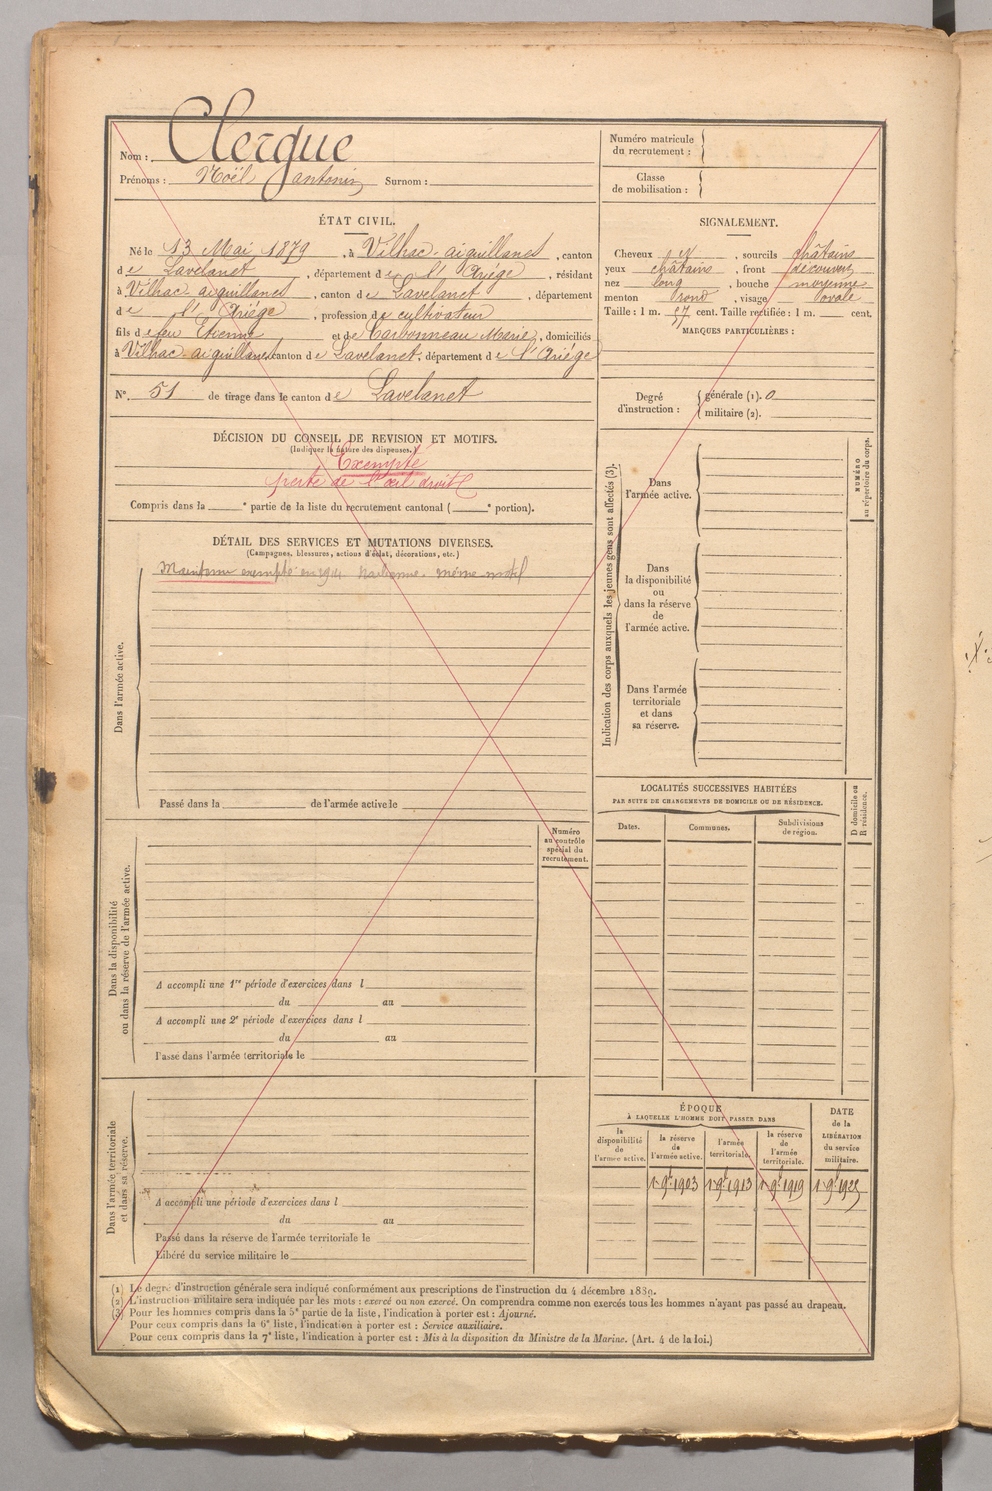 Nom : Clergue
Prénoms : Noël antonin Surnom :
Numéro matricule
du recrutement :
Classe
de mobilisation :
ÉTAT CIVIL.
Né le 13 Mai 1879, à Vilhac-aiguillanes, canton
de Lavelanet, département de l'Ariége, résidant
à Vilhac-aiguillanes, canton de Lavelanet, département
de l'Ariége, profession de cultivateur
fils de feu Etienne et de Carbonneau Marie, domiciliés
à Vilhac-aiguillanes canton de Lavelanet, département de l'Ariége
N° 51 de tirage dans le canton de Lavelanet
SIGNALEMENT.
Cheveux et, sourcils châtains
yeux châtains, front découvert
nez long, bouche moyenne
menton rond, visage ovale
Taille : 1 m. 57 cent. Taille rectifiée : 1 m. cent.
MARQUES PARTICULIÈRES :
Degré
d'instruction :
générale (1). 0
militaire (2).
DÉCISION DU CONSEIL DE REVISION ET MOTIFS.
(Indiquer la nature des dispenses.)
Exempté
perte de l'œil droit
Compris dans la e partie de la liste du recrutement cantonal ( e portion).
DÉTAIL DES SERVICES ET MUTATIONS DIVERSES.
(Campagnes, blessures, actions d'éclat, décorations, etc.)
Maintenu exempté en 1914. même motif
Dans l'armée active.
Passé dans la de l'armée active le
Indication des corps auxquels les jeunes gens sont affectés (3).
Dans
l'armée active.
Dans
la disponibilité
ou
dans la réserve
de
l'armée active.
Dans l'armée
territoriale
et dans
sa réserve.
NUMÉRO
au répertoire du corps.
LOCALITÉS SUCCESSIVES HABITÉES
PAR SUITE DE CHANGEMENTS DE DOMICILE OU DE RÉSIDENCE.
D domicile ou
R résidence.
Dates.
Communes.
Subdivisions
de région.
Numéro
au contrôle
spécial du
recrutement.
Dans la disponibilité
ou dans la réserve de l'armée active.
A accompli une 1re période d'exercices dans l
du au
A accompli une 2e période d'exercices dans l
du au
Passé dans l'armée territoriale le
Dans l'armée territoriale
et dans sa réserve.
A accompli une période d'exercices dans l
du au
Passé dans la réserve de l'armée territoriale le
Libéré du service militaire le
ÉPOQUE
À LAQUELLE L'HOMME DOIT PASSER DANS
la
disponibilité
de
l'armée active.
la réserve
de
l'armée active.
l'armée
territoriale.
la réserve
de
l'armée
territoriale.
DATE
de la
LIBÉRATION
du service
militaire.
1 9bre 1903
1 9bre 1913
1 9bre 1919
1 9bre 1925
(1) Le degré d'instruction générale sera indiqué conformément aux prescriptions de l'instruction du 4 décembre 1889.
(2) L'instruction militaire sera indiquée par les mots : exercé ou non exercé. On comprendra comme non exercés tous les hommes n'ayant pas passé au drapeau.
(3) Pour les hommes compris dans la 5e partie de la liste, l'indication à porter est : Ajourné.
Pour ceux compris dans la 6e liste, l'indication à porter est : Service auxiliaire.
Pour ceux compris dans la 7e liste, l'indication à porter est : Mis à la disposition du Ministre de la Marine. (Art. 4 de la loi.)